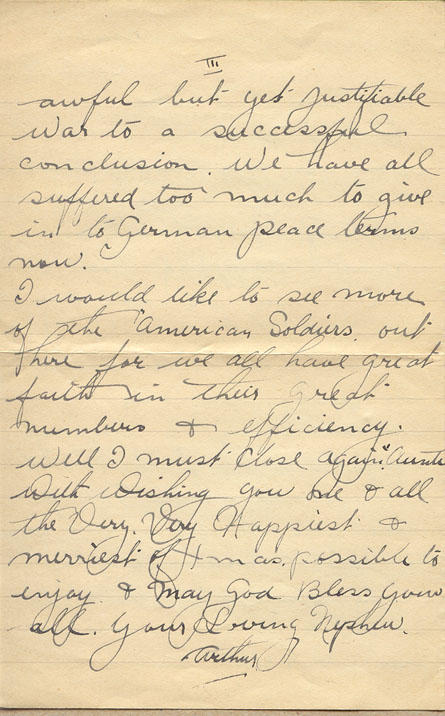 III
awful but yet justifiable
War to a successful
conclusion. We have all
suffered too much to give
in to German peace terms
now.
I would like to see more
of the "American Soldiers out
here for we all have great
faith in their great
numbers & efficiency.
Well I must close again "Aunte
With Wishing you one & all
the Very, Very Happiest &
merriest of Xmas possible to
enjoy & May God Bless you
all. Your Loving Nephew.
Arthur